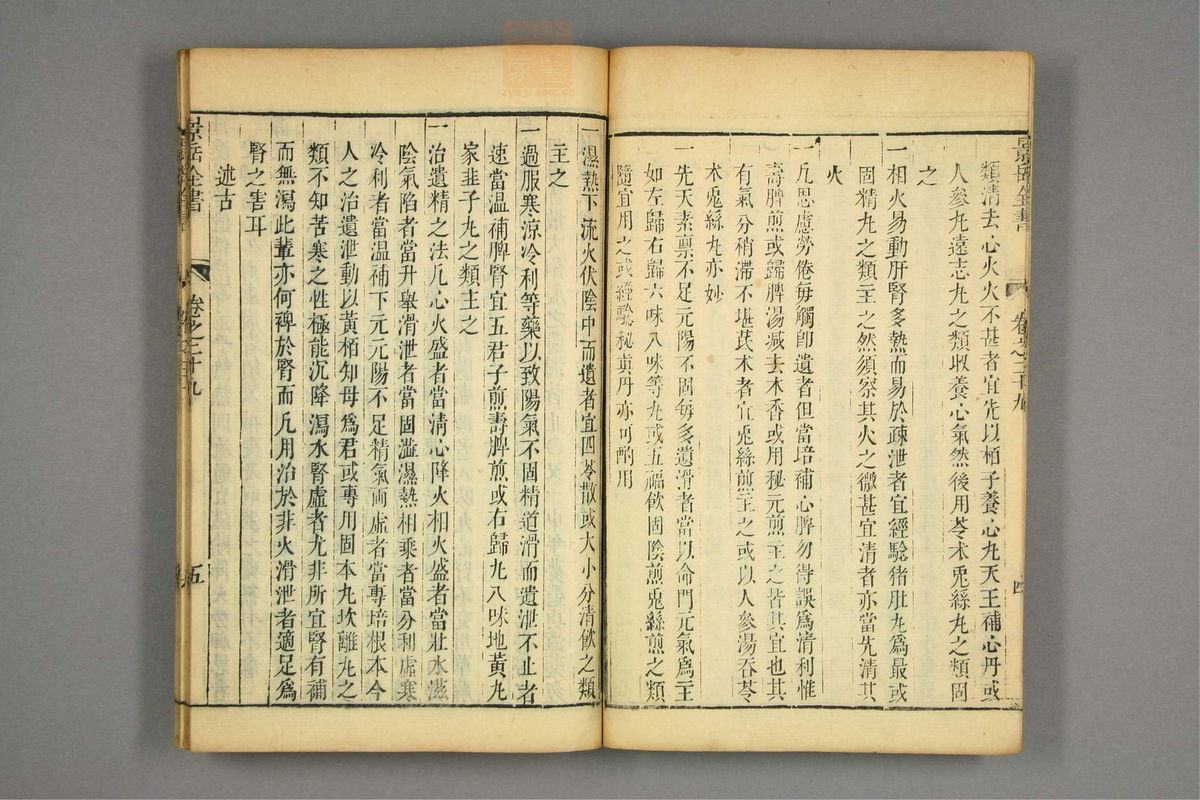 景岳全書
卷之二十九
四
類清去心火火不甚者宜先以栢子養心丸天王補心丹或
人參丸遠志丸之類收養心氣然後用苓朮兎絲丸之類固
之
一相火易動肝腎多熱而易於疎泄者宜經騐猪肚丸爲最或
固精丸之類主之然須察其火之微甚宜清者亦當先清其
火
一凡思慮勞倦每觸卽遺者但當培補心脾勿得誤爲清利惟
壽脾煎或歸脾湯減去木香或用秘元煎主之皆其宜也其
有氣分稍滯不堪茋朮者宜兎絲煎主之或以人參湯吞苓
朮兎絲丸亦妙
一先天素禀不足元陽不固每多遺滑者當以命門元氣爲主
如左歸右歸六味八味等丸或五福飲固陰煎兎絲煎之類
隨宜用之或經騐秘眞丹亦可酌用
一濕熱下流火伏陰中而遺者宜四苓散或大小分清飲之類
主之
一過服寒涼冷利等藥以致陽氣不固精道滑而遺泄不止者
速當温補脾腎宜五君子煎壽脾煎或右歸丸八味地黃丸
家韭子丸之類主之
一治遺精之法凡心火盛者當清心降火相火盛者當壯水滋
陰氣陷者當升舉滑泄者當固濇濕熱相乘者當分利虛寒
冷利者當温補下元元陽不足精氣兩虛者當專培根本今
人之治遺泄動以黃栢知母爲君或專用固本丸坎離丸之
類不知苦寒之性極能沉降瀉水腎虛者尤非所宜腎有補
而無瀉此輩亦何裨於腎而凡用治於非火滑泄者適足爲
腎之害耳
述古
景岳全書
卷之二十九
五